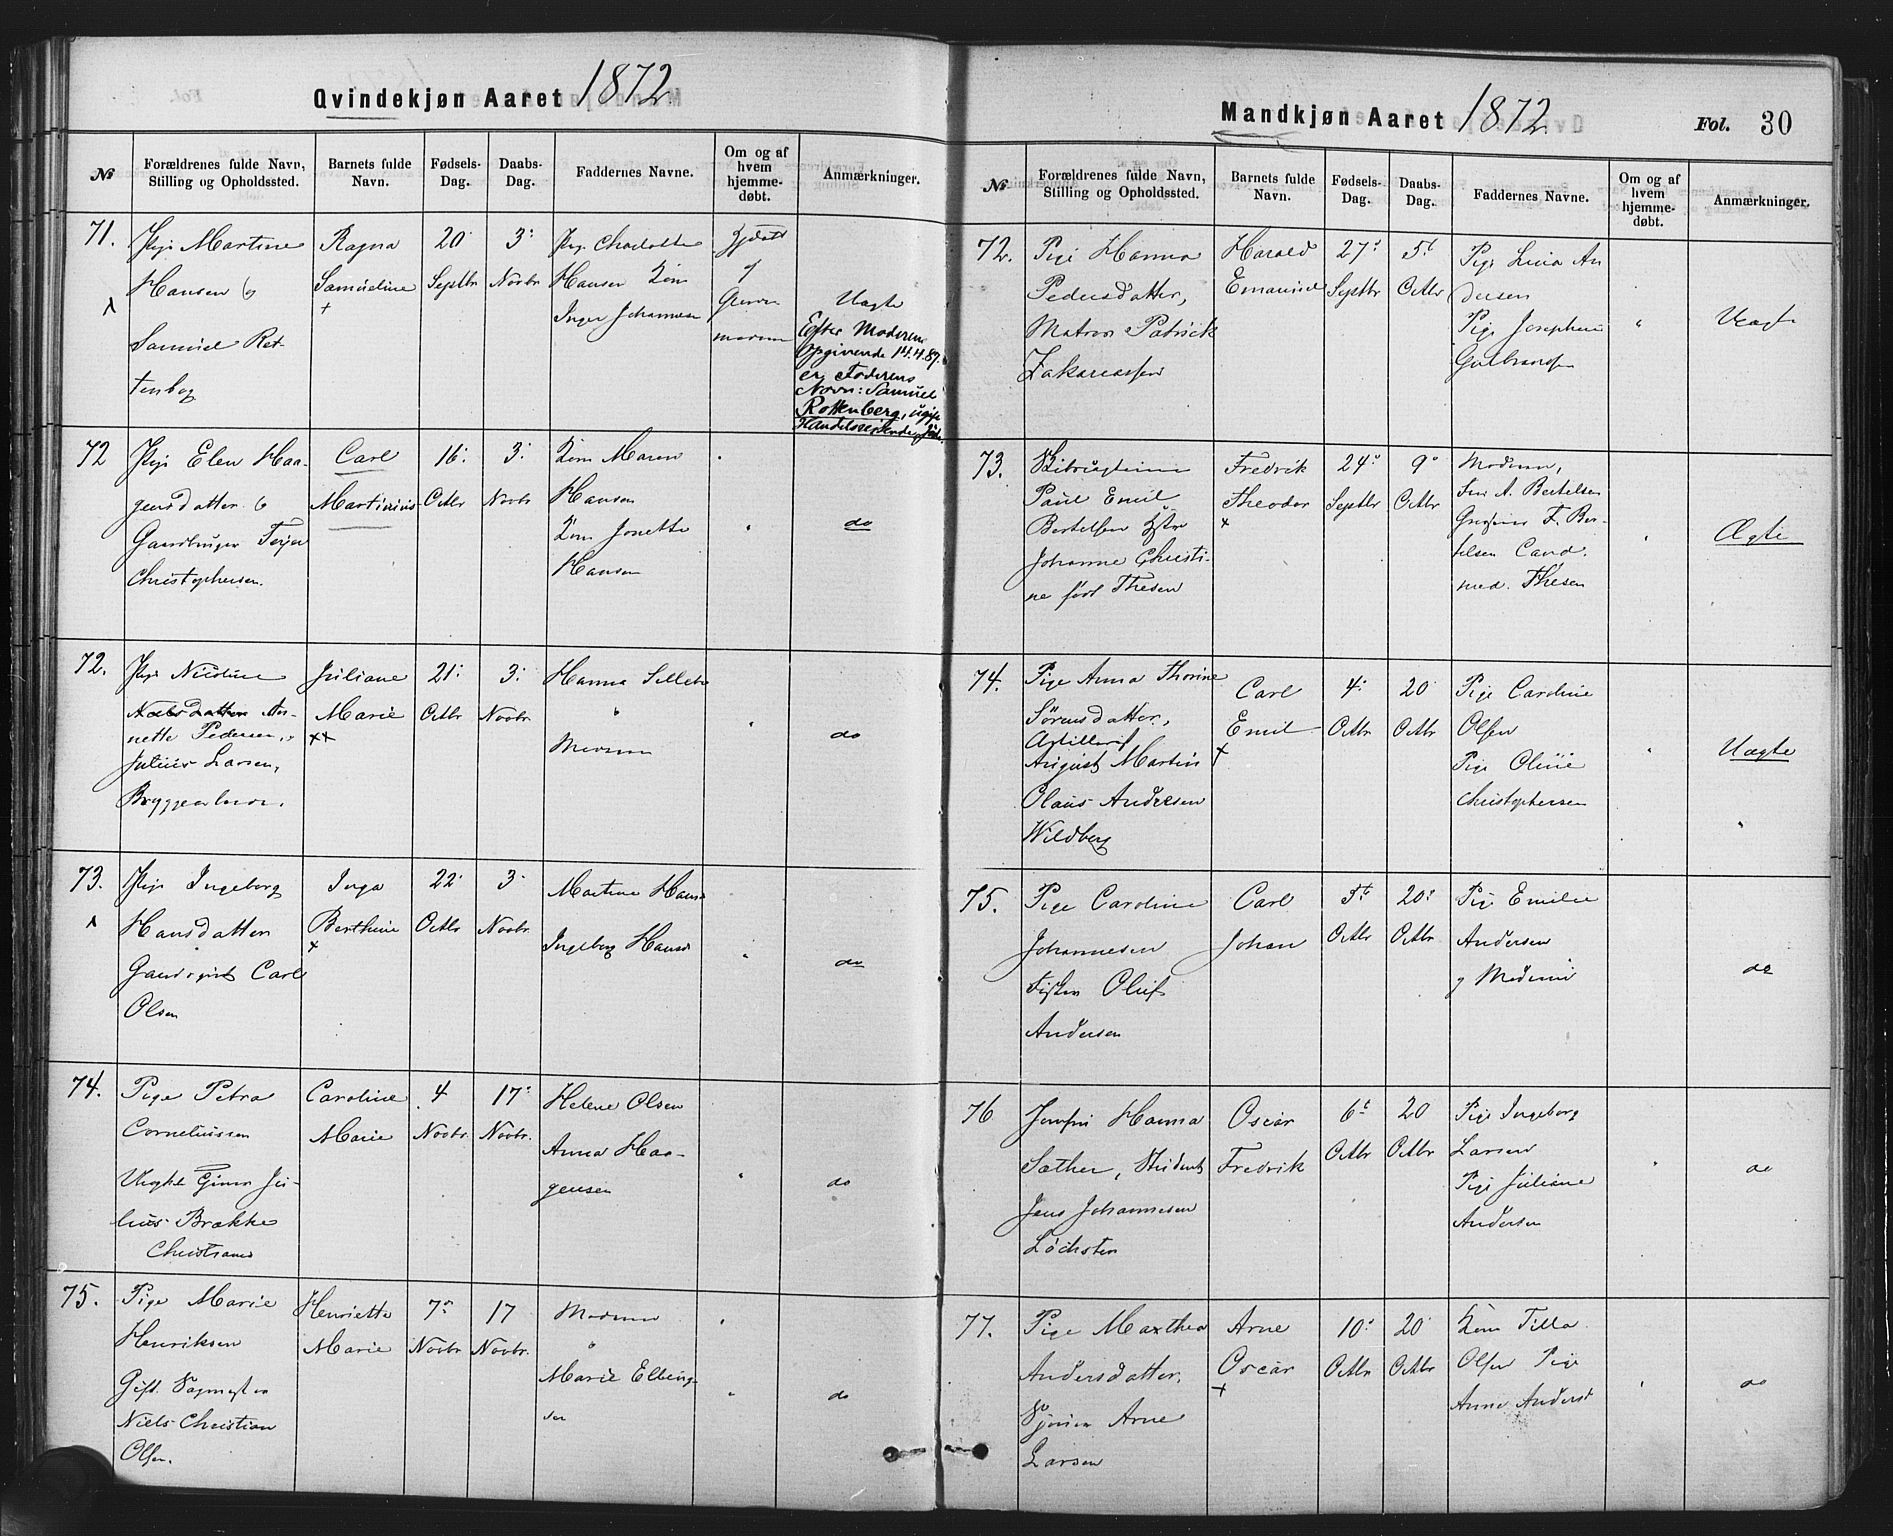 Qvindekjøn Aaret 1872
№
Forældrenes fulde Navn,
Stilling og Opholdssted.
Barnets fulde
Navn.
Fødsels-
Dag.
Daabs-
Dag.
Faddernes Navne.
Om og af
hvem
hjemme-
døbt.
Anmærkninger.
71.
Pige Martine
Hansen og
Samuel Ret-
tenberg
Ragna
Samudine
20
Septbr
3
Novbr
Pige Charlotte
Hansen Kone
Inger Johannesen
Uægte
Efter Moderens
Opgivende 14.4.87.
er Faderens
Navn: Samuel
Rottenberg, ugift
72
Pige Elen Haa-
gensdatter
Christophersen.
Carl
Martinius
16
Octbr
3
Novbr
Kone Maren
Hansen
Kone Jonette
Hansen
do
72.
Pige Nicoline
nette Pedersen,
Julius Larsen,
Juliane
Marie
21
Octbr
3
Novbr
Hanna
do
73.
Pige Ingeborg
Hansdatter
Carl
Olsen
Inga
Berthine
22
Octbr
3
Novbr.
Martine Hansd
Ingeborg Hansd
do
74.
Pige Petra
Corneliussen
Ju-
lius Brække
Christiania
Caroline
Marie
4
Novbr.
17
Novbr.
Helene Olsen
Anna Haa-
gensen
do
75.
Pige Marie
Henriksen
Gift
Niels Christian
Olsen.
Henriette
Marie
7
Novbr
17
Novbr.
Moderen
Marie
do
Mandkjøn Aaret 1872
Fol. 30
№
Forældrenes fulde Navn,
Stilling og Opholdssted.
Barnets fulde
Navn.
Fødsels-
Dag.
Daabs-
Dag.
Faddernes Navne.
Om og af
hvem
hjemme-
døbt.
Anmærkninger.
72.
Pige Hanna
Pedersdatter,
Matros Patrick
Zakariassen
Harald
Emanuel
27
Septbr
5
Octbr
Pige Lina An
dersen
Pige Josephine
Gulbrandsen
Uægte
73.
Paul Emil
Bertelsen
Johanne Christi-
ne født Thesen
Fredrik
Theodor
24
Septbr
9
Octbr
Moderen,
Fru A. Bertelsen
F. Ber-
telsen Cand.
med. Thesen
Ægte
74.
Pige Anna Thorine
Sørensdatter,
Artillerist
August Martin
Olaus Andersen
Wildberg
Carl
Emil
4
Octbr
20
Octbr
Pige Caroline
Olsen
Pige Oline
Christophersen
Uægte
75.
Pige Caroline
Johannesen
Fisker Oluf
Andersen
Carl
Johan
5
Octbr
20
Octbr
Pige Emilie
Andersen
og Moderen
do
76
Hanna
Sæther, Student
Jens Johannesen
Oscar
Fredrik
6
Octbr
20
Octbr
Pige Ingeborg
Larsen
Pige Juliane
Andersen
do
77.
Pige Marthea
Andersdatter,
Arne
Larsen
Arne
Oscar
10
Octbr
20
Octbr
Kone Tilla
Olsen Pige
Anne Andersd
do